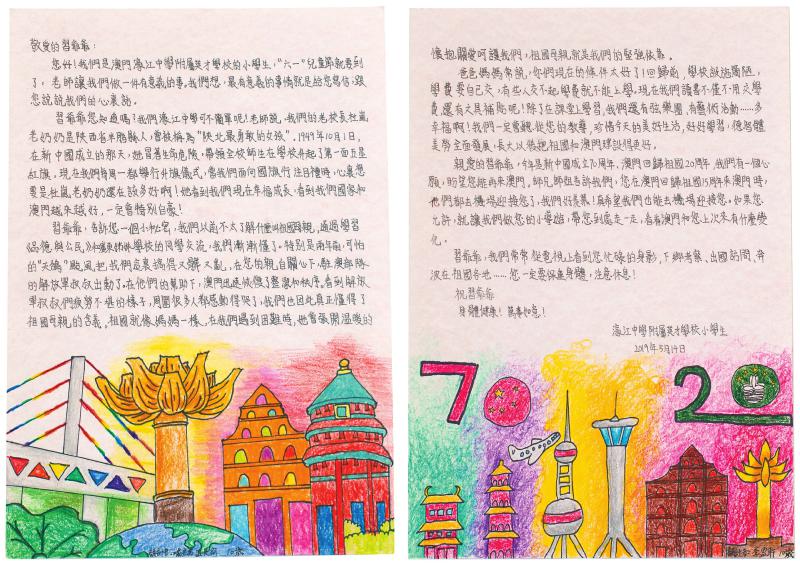 敬愛的習爺爺：
您好！我們是澳門濠江中學附屬英才學校的小學生，“六一”兒童節就要到
了，老師讓我們做一件有意義的事，我們想，最有意義的事情就是給您寫信，跟
您說說我們的心裏話。
習爺爺您知道嗎？我們濠江中學可不簡單呢！老師說，我們的老校長杜嵐
老奶奶是陝西省米脂縣人，曾被稱為“陝北最勇敢的女孩”，1949年10月1日，
在新中國成立的那天，她冒着生命危險，帶領全校師生在學校升起了第一面五星
紅旗，現在我們每周一都舉行升旗儀式，當我們面向國旗行注目禮時，心裏想
要是杜嵐老奶奶還在該多好啊！她看到我們現在幸福成長，看到我們國家和
澳門越來越好，一定會特別自豪！
習爺爺，告訴您一個小秘密，我們以前不太了解什麼叫祖國母親，通過學習
《品德與公民》和姊妹學校的同學交流，我們漸漸懂了。特別是兩年前，可怕
的“天鴿”颱風，把我們這裏搞得又髒又亂，在您的親自關心下，駐澳部隊
的解放軍叔叔出動了，在他們的幫助下，澳門迅速恢復了整潔和秩序，看到解放
軍叔叔們疲勞不堪的樣子，周圍很多人都感動得哭了，我們也因此真正懂得了
祖國母親的含義，祖國就像媽媽一樣，在我們遇到困難時，她會張開溫暖的
懷抱關愛呵護我們，祖國母親就是我們的堅強依靠。
爸爸媽媽常說，你們現在的條件太好了！回歸前，學校設施簡陋，
學費要自己交，有些人交不起學費就不能上學。現在我們讀書不僅不用交學
費，還有文具補貼呢！除了在課堂上學習，我們還有弦樂團，有藝術活動……多
幸福啊！我們一定會聽從您的教導，珍惜今天的美好生活，好好學習，德智體
美勞全面發展，長大以後把祖國和澳門建設得更好。
親愛的習爺爺，今年是新中國成立70周年，澳門回歸祖國20周年，我們有一個心
願，盼望您能再來澳門。師兄師姐告訴我們，您在澳門回歸祖國15周年來澳門時，
他們都去機場迎接您了，我們好羨慕！真希望我們也能去機場迎接您。如果您
允許，就讓我們做您的小導遊，帶您到處走一走，看看澳門和您上次來有什麼變
化。
習爺爺，我們常常從電視上看到您忙碌的身影，下鄉考察，出國訪問，奔
波在祖國各地……您一定要保重身體，注意休息！
祝習爺爺
身體健康！萬事如意！
濠江中學附屬英才學校小學生
2019年5月14日
70 20